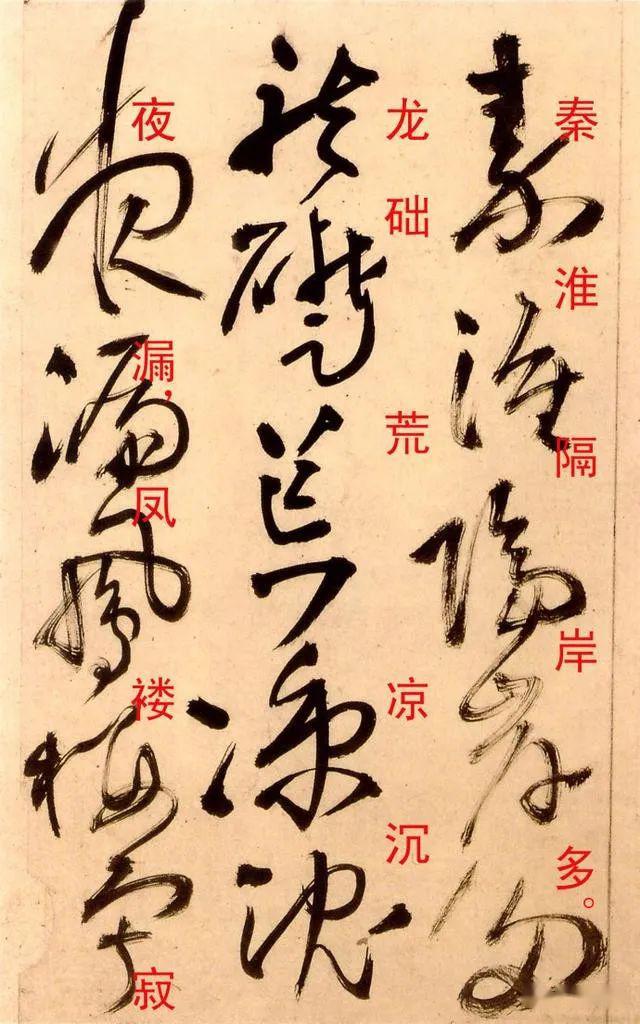 秦淮隔岸多。
龙础荒凉沉
夜漏，凤褛寂